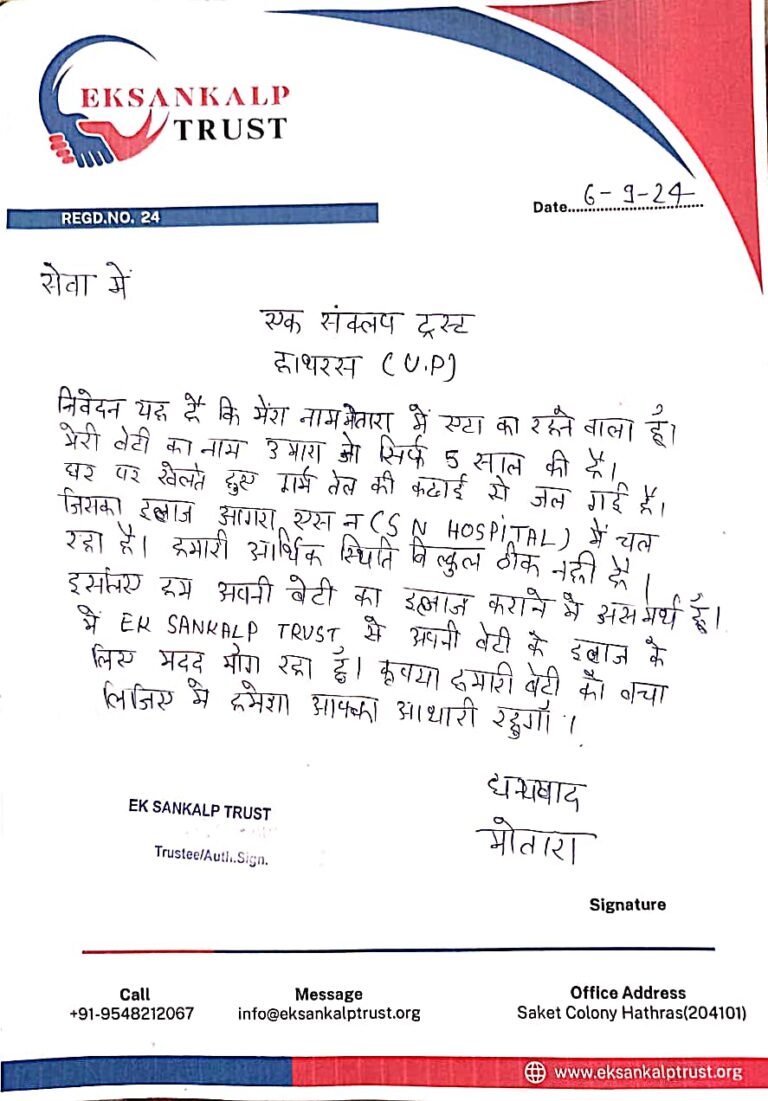 EKSANKALP
TRUST
REGD.NO. 24
Date 6-9-24
सेवा में
एक संकल्प ट्रस्ट
हाथरस (U.P)
निवेदन यह है कि मेंरा नाम मेतारा में एटा का रहने वाला हूँ।
मेरी बेटी का नाम उमारा जो सिर्फ 5 साल की है।
घर पर खेलते हुए गर्म तेल की कढाई से जल गई है।
जिसका इलाज आगरा एस न (S N HOSPITAL) में चल
रहा है। हमारी आर्थिक स्थिति बिल्कुल ठीक नही है।
इसलिए हम अपनी बेटी का इलाज कराने मे असमर्थ हूँ।
में EK SANKALP TRUST से अपनी बेटी के इलाज के
लिए मदद माँग रहा हूँ। कृपया हमारी बेटी को बचा
लिजिए मे हमेशा आपका आभारी रहुगाँ।
धन्यबाद
मोतारा
EK SANKALP TRUST
Trustee/Auth.Sign.
Signature
Call
+91-9548212067
Message
info@eksankalptrust.org
Office Address
Saket Colony Hathras(204101)
www.eksankalptrust.org